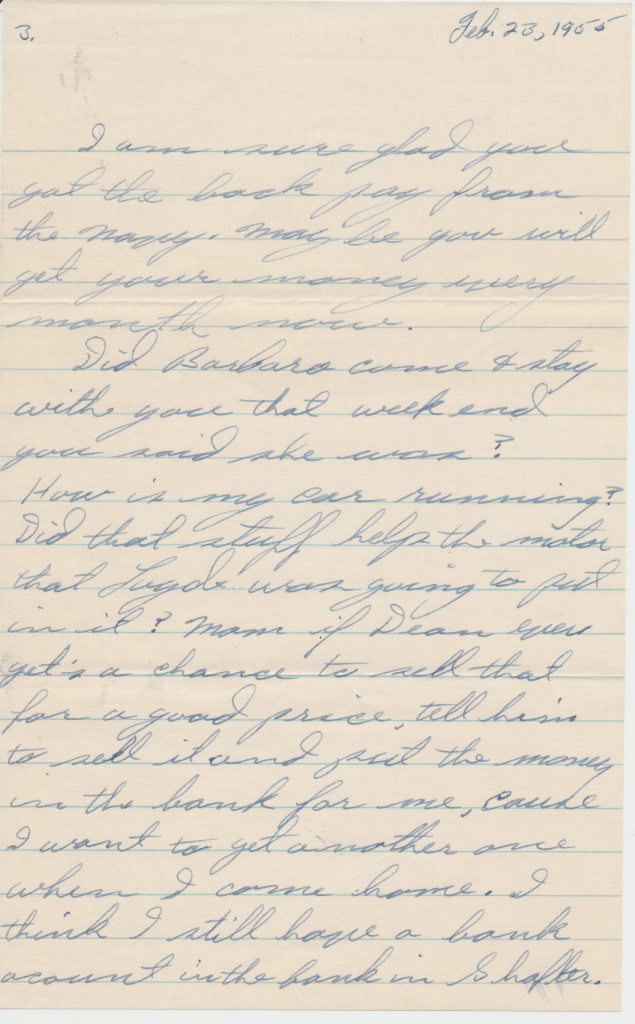 3.
Feb. 23, 1955
I am sure glad you
got the back pay from
the navy. May be you will
get your money every
month now.
Did Barbara come & stay
withe you that week end
you said she was?
How is my car running?
Did that stuff help the motor
that Loyde was going to put
in it? Mom if Dean ever
get's a chance to sell that
for a good price, tell him
to sell it and put the money
in the bank for me, cause
I want to get another one
when I come home. I
think I still have a bank
acount in the bank in Shafter.